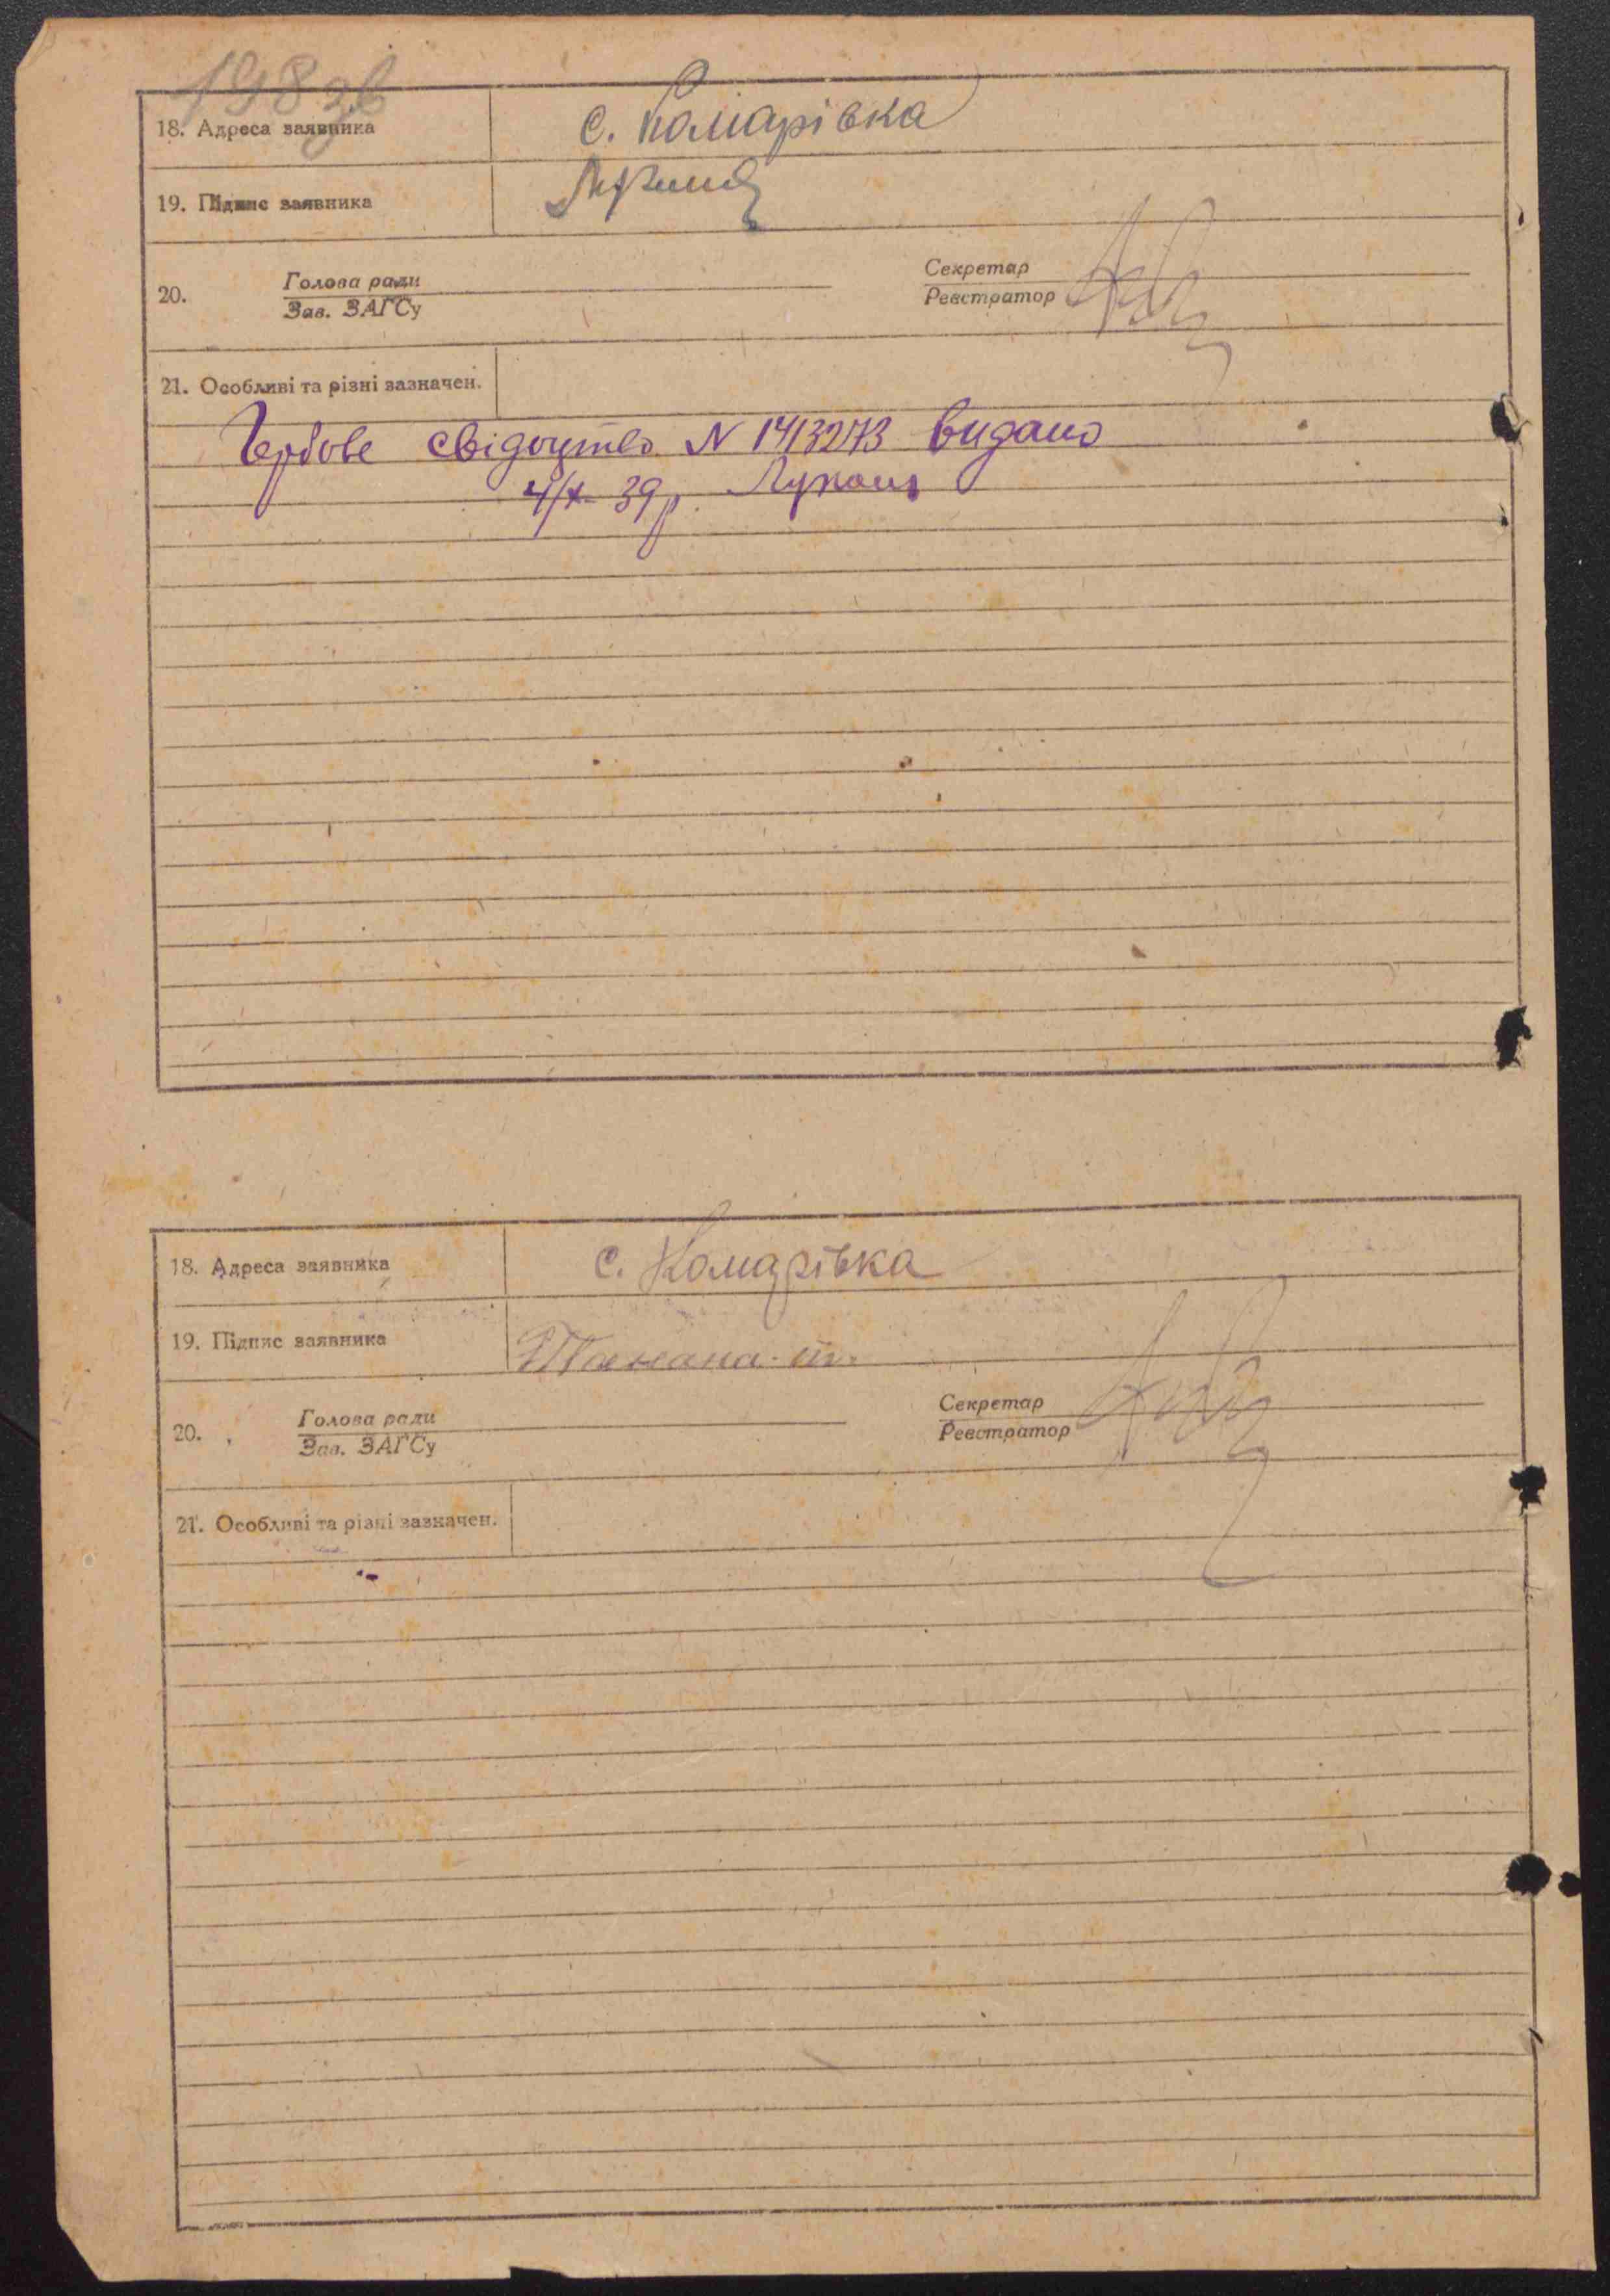 198 зв
18. Адреса заявника с. Комарівка
19. Підпис заявника
20. Голова ради
Зав. ЗАГСу
Секретар
Реєстратор
21. Особливі та різні зазначен.
Гербове свідоцтво N 1413273 видано
4/X-39 р.
18. Адреса заявника с. Комарівка
19. Підпис заявника
20. Голова ради
Зав. ЗАГСу
Секретар
Реєстратор
21. Особливі та різні зазначен.